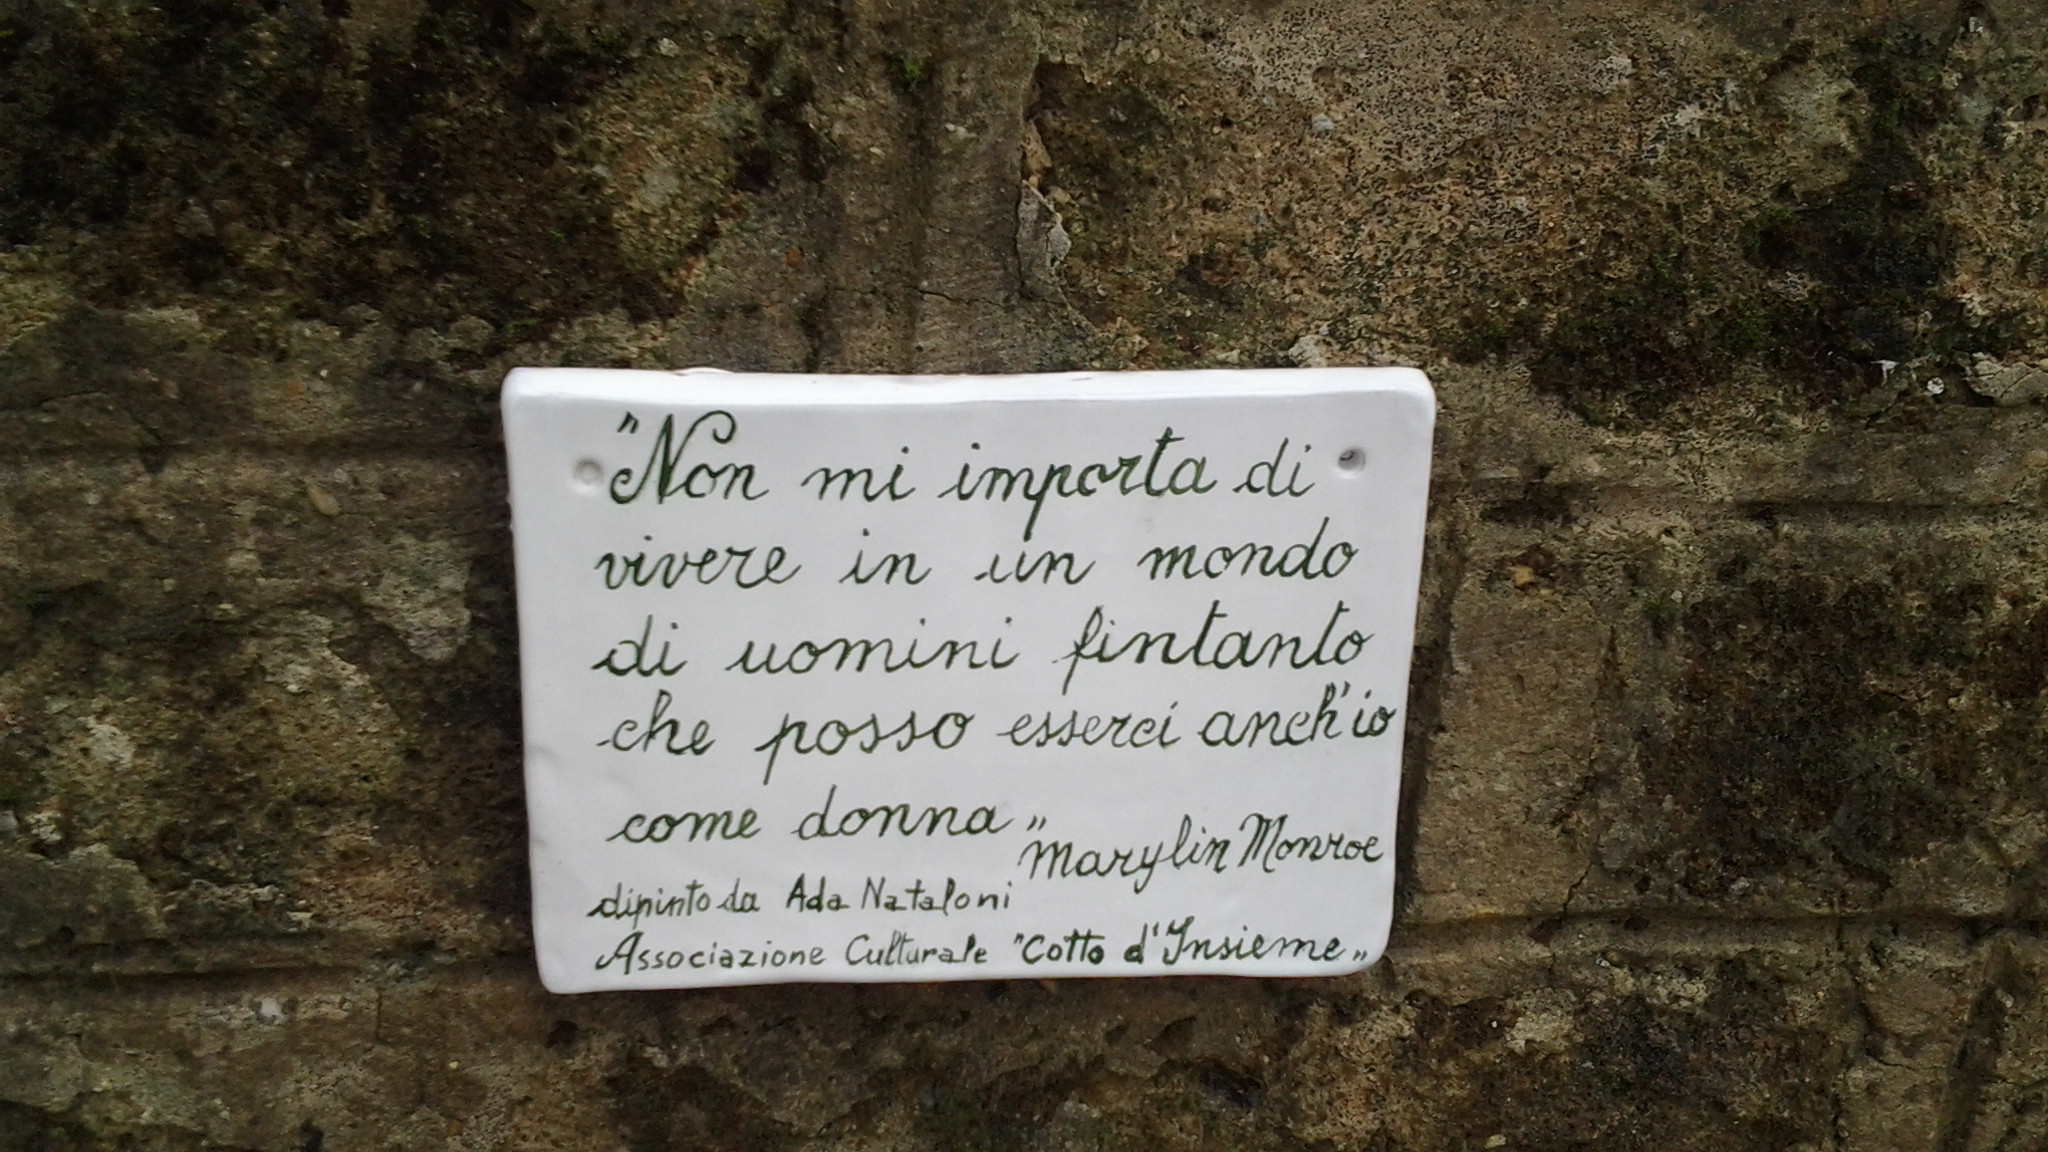 "Non mi importa di
vivere in un mondo
di uomini fintanto
che posso esserci anch'io
come donna"
Marylin Monroe
dipinto da Ada Nataloni
Associazione Culturale "Cotto d'Insieme"